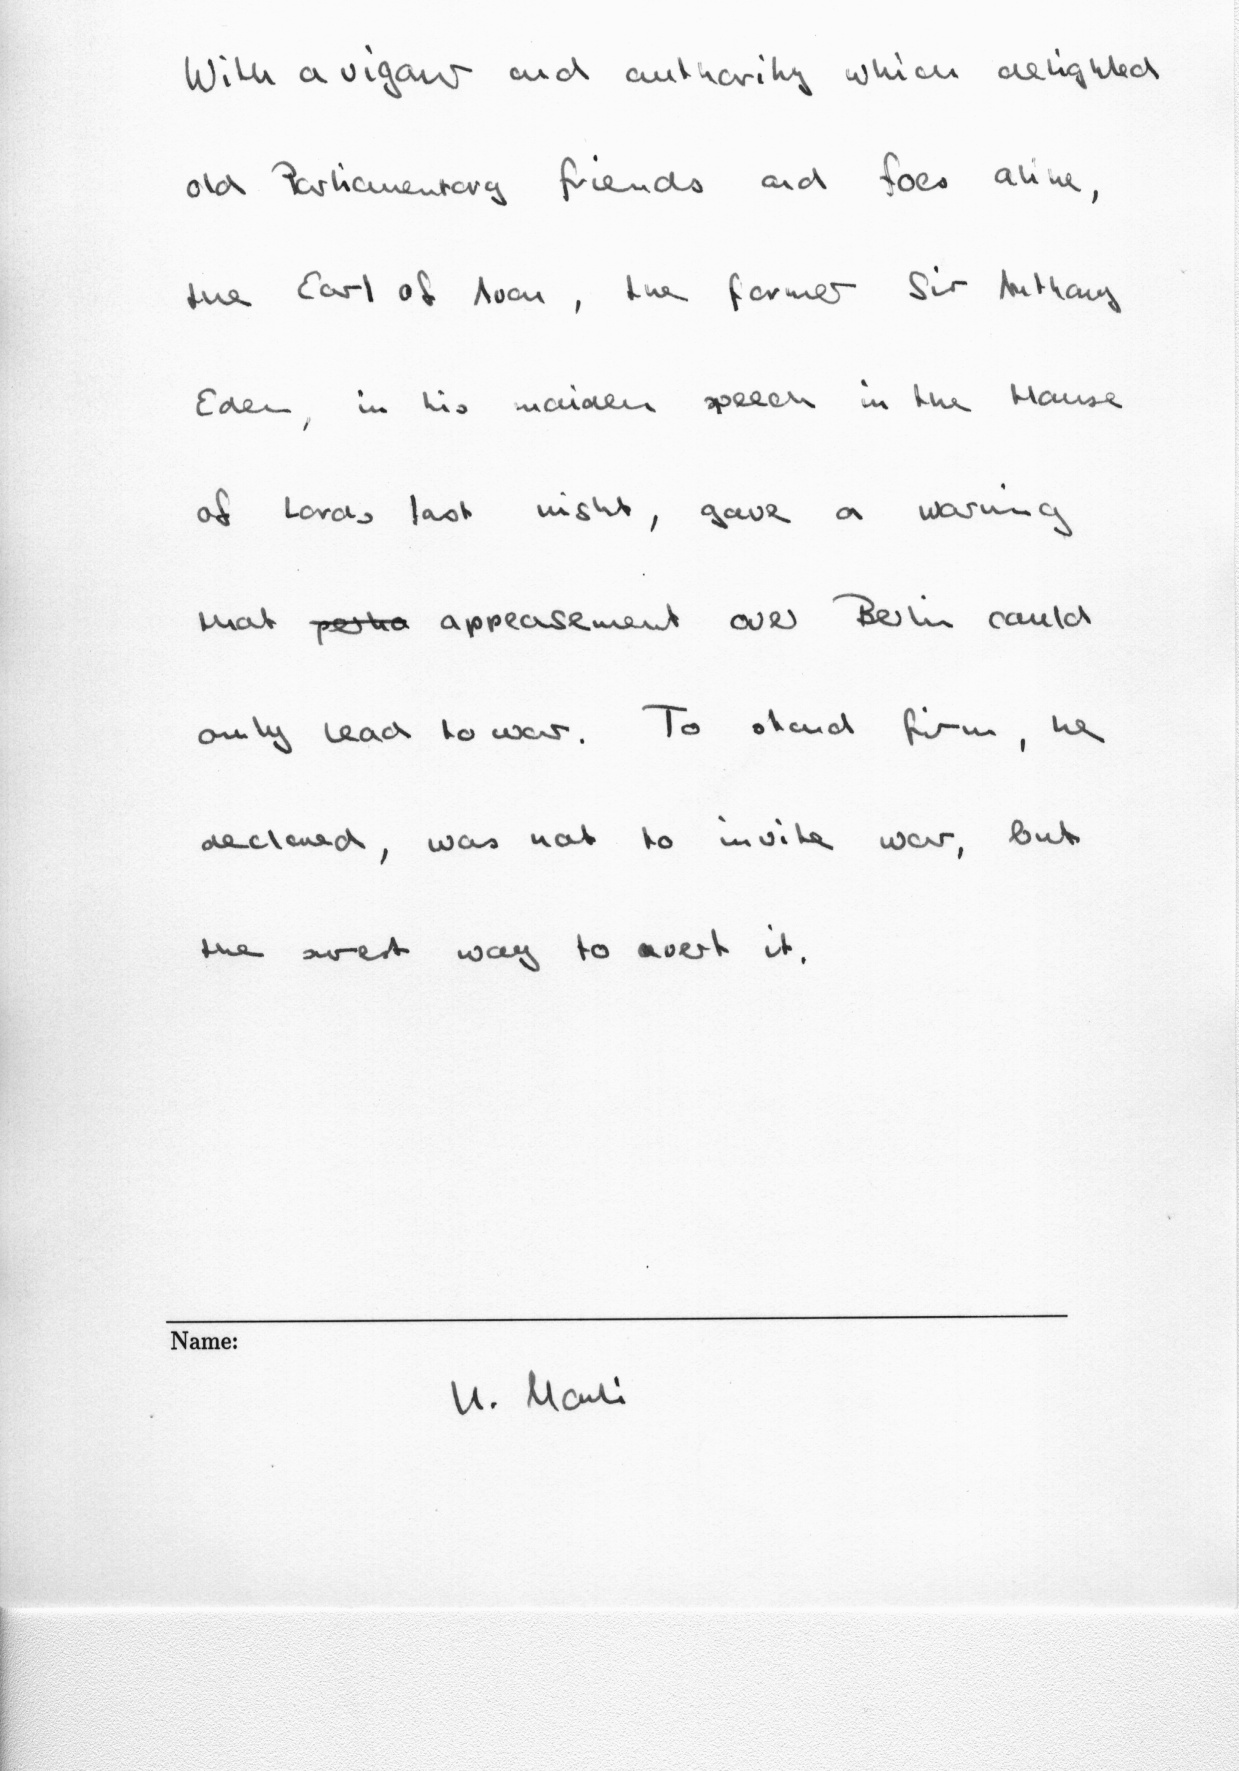 With a vigour and authority which delighted
old Parliamentary friends and foes alike,
the Earl of Avon, the former Sir Anthony
Eden, in his maiden speech in the House
of Lords last night, gave a warning
that appeasement over Berlin could
only lead to war. To stand firm, he
declared, was not to invite war, but
the surest way to avert it.
Name: